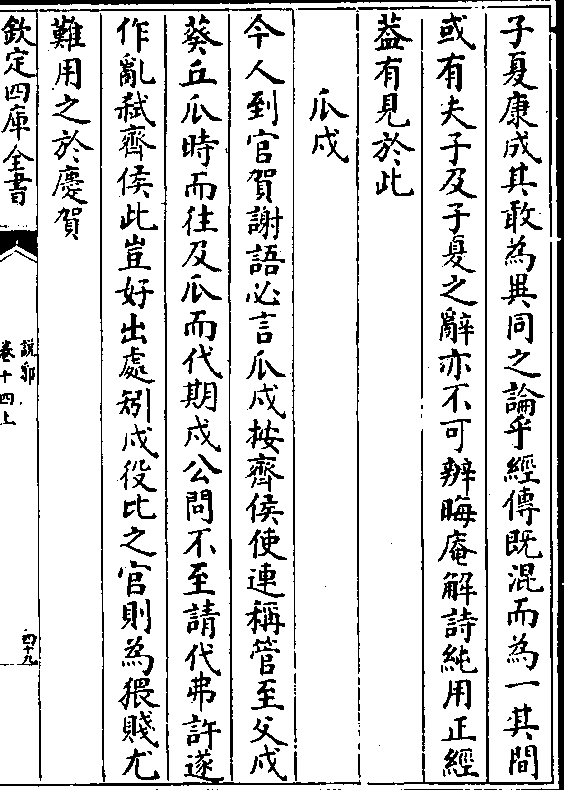 子夏康成其敢為異同之論乎經傳既混而為一其間
或有夫子及子夏之辭亦不可辨晦庵解詩純用正經
葢有見於此
瓜戍
今人到官賀謝語必言瓜戍按齊侯使連稱管至父戍
葵丘瓜時而往及瓜而代期戍公問不至請代弗許遂
作亂弑齊侯此豈好出處矧戍役比之官則為猥賤尤
難用之於慶賀
欽定四庫全書
說郛
卷十四上
四十九